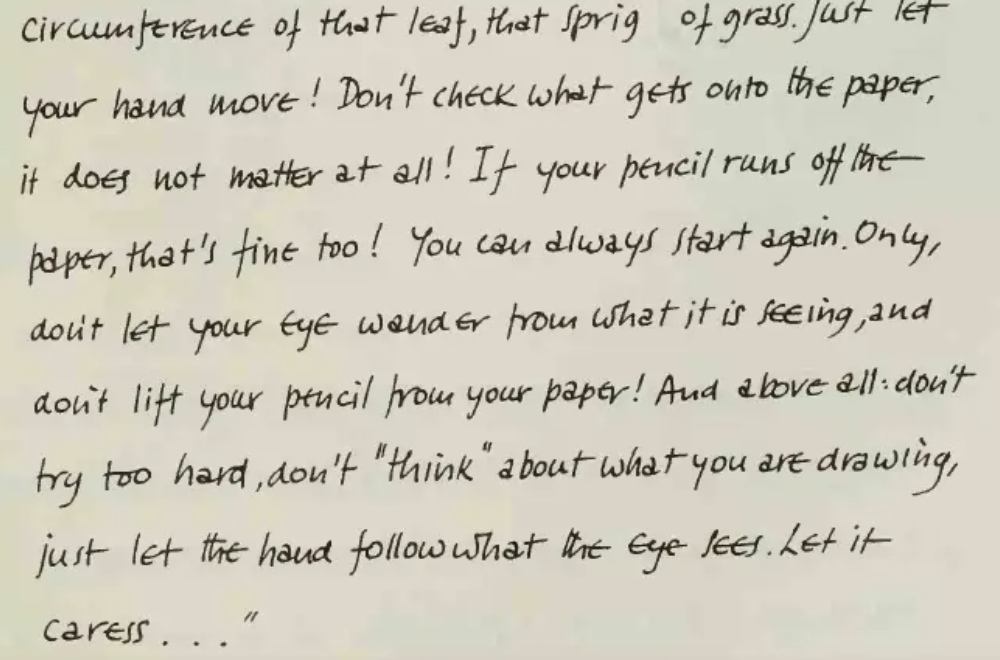 circumference of that leaf, that sprig of grass. Just let
your hand move! Don't check what gets onto the paper,
it does not matter at all! If your pencil runs off the
paper, that's fine too! You can always start again. Only,
don't let your eye wander from what it is seeing, and
don't lift your pencil from your paper! And above all: don't
try too hard, don't "think" about what you are drawing,
just let the hand follow what the eye sees. Let it
caress . . . ."